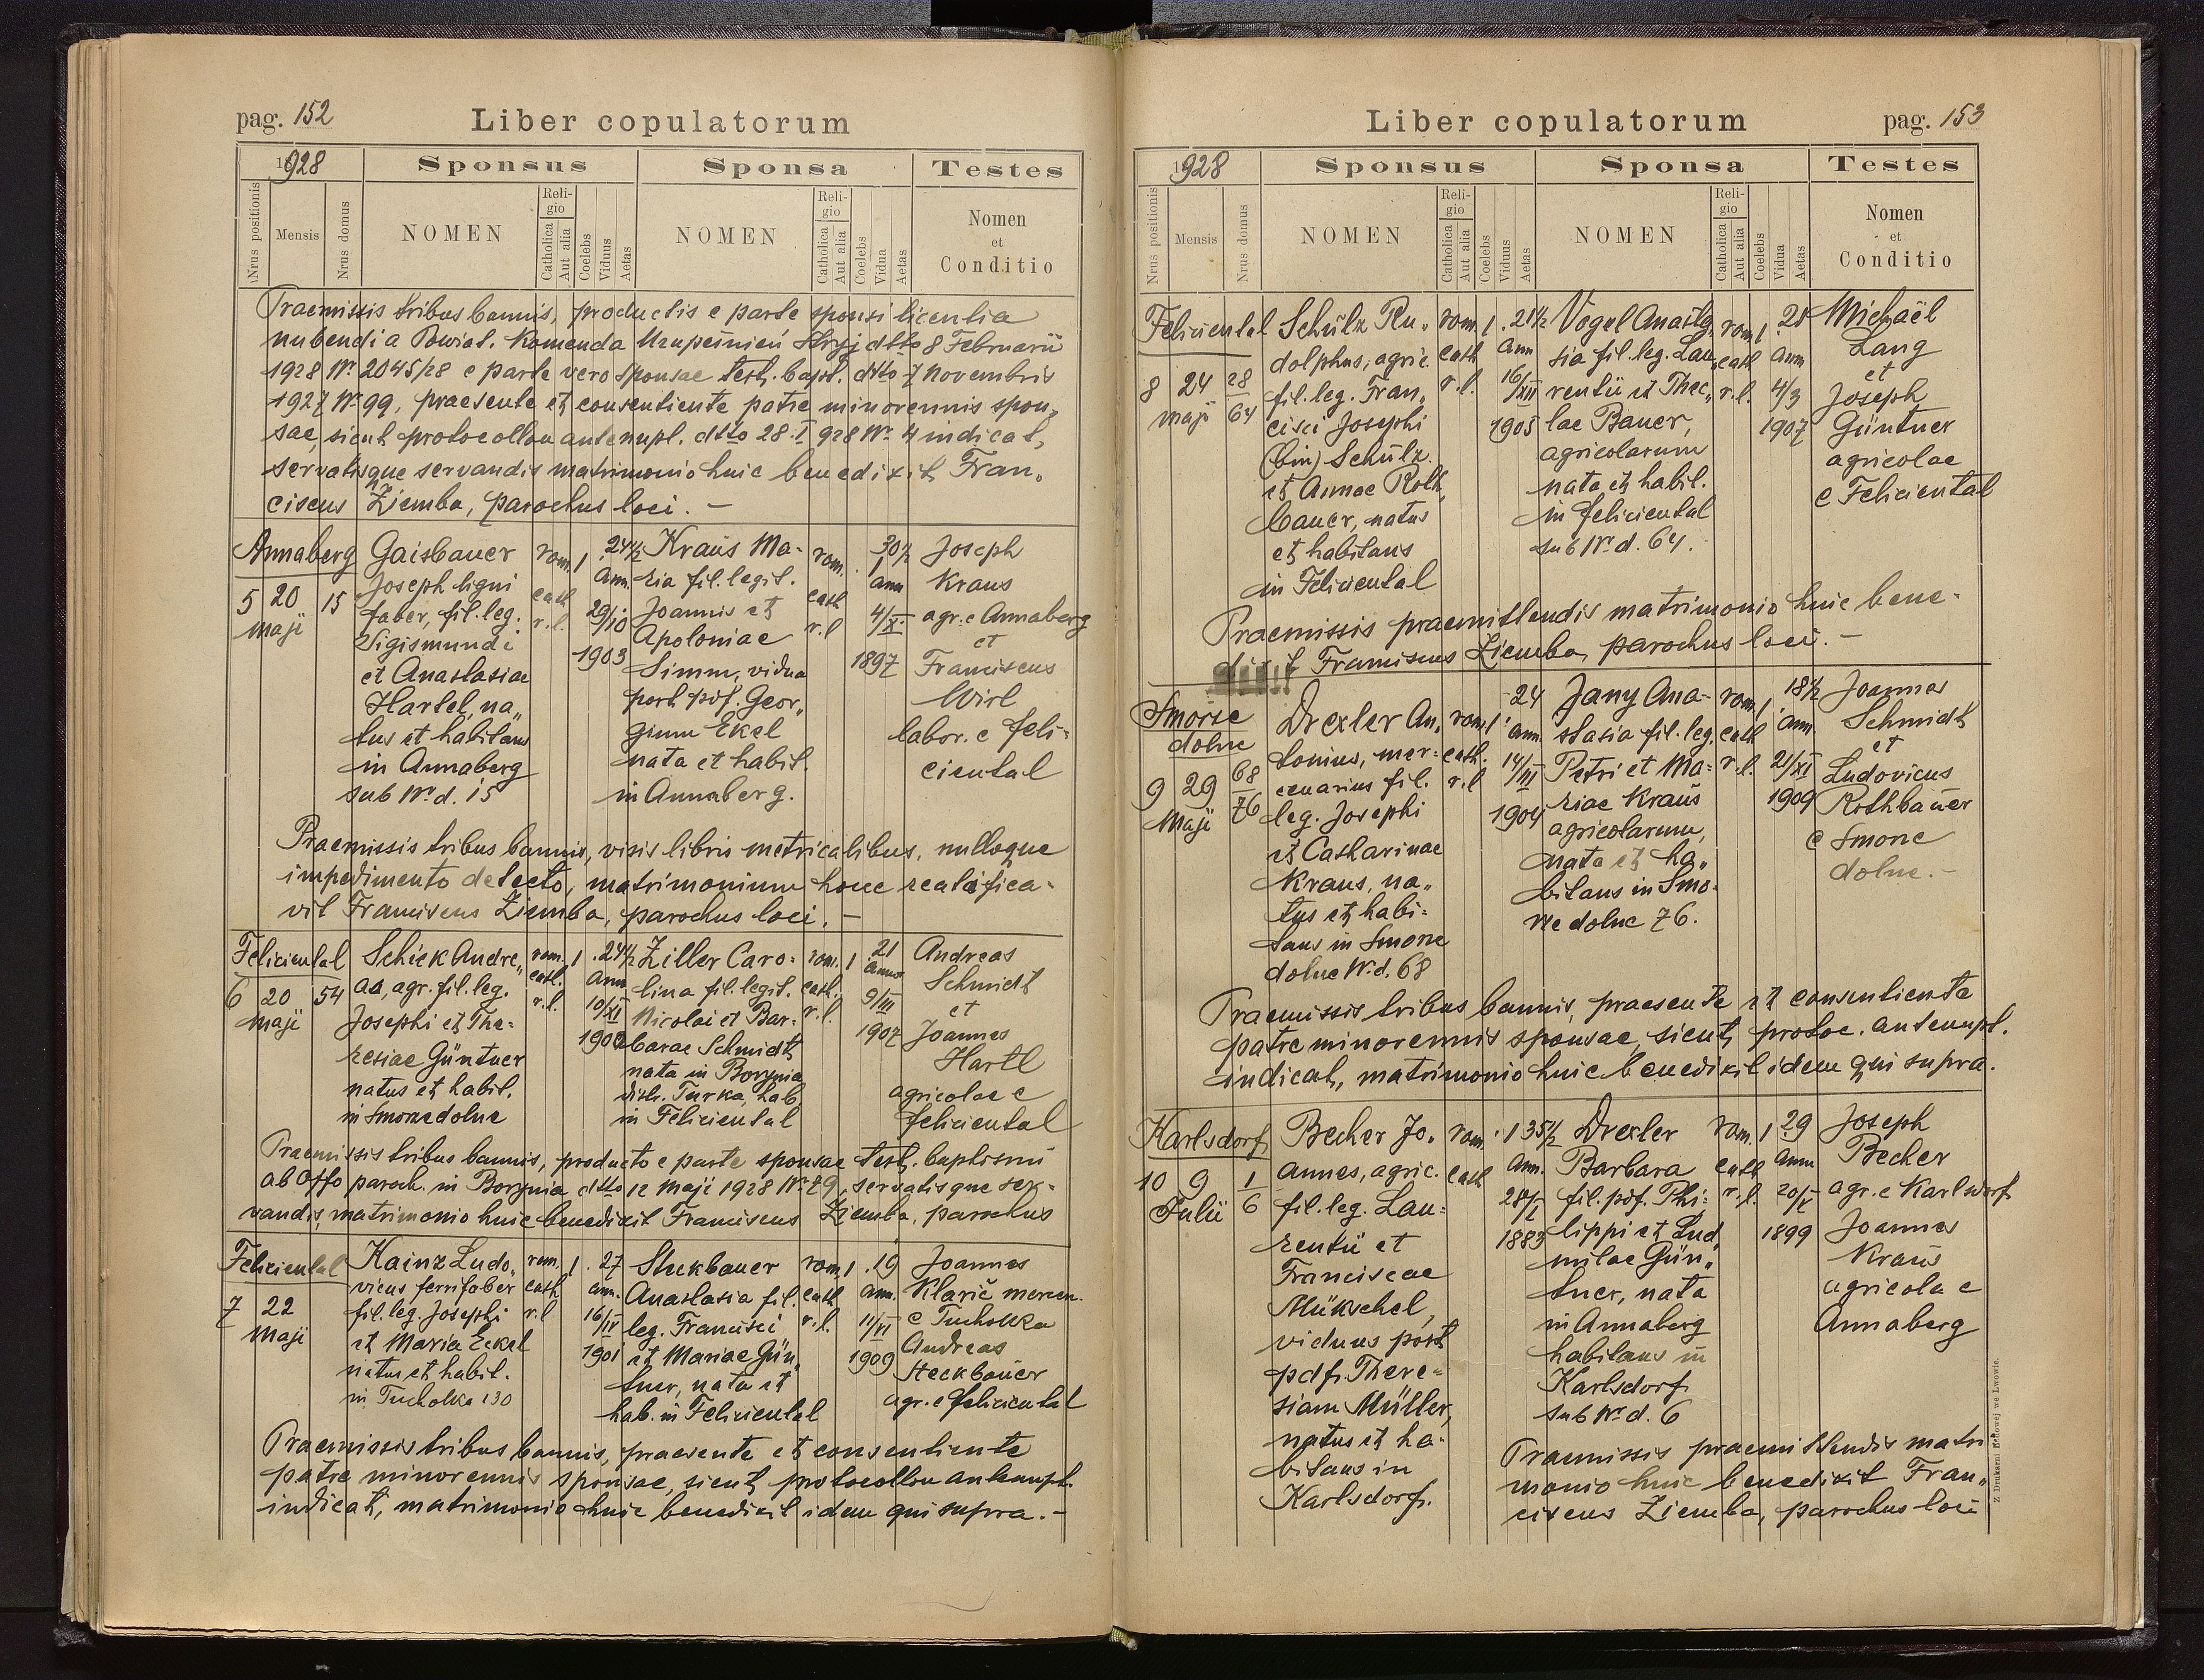 pag. 152
Liber copulatorum
1928
Sponsus
Sponsa
Testes
Nrus positionis
Mensis
Nrus domus
NOMEN
Religio
Catholica
Aut alia
Coelebs
Viduus
Aetas
NOMEN
Religio
Catholica
Aut alia
Coelebs
Vidua
Aetas
Nomen
et
Conditio
Praemissis tribus bannis, productis e parte sponsi licentia
nubendi a Powiat. Komenda Uzupełnień Stryj dtto 8 Februarii
1928 Nr. 2045/28 e parte vero sponsae test. bapt. dtto 7 Novembris
1927 Nr 99, praesente et consentiente patre minorennis spon„
sae, sicut protocollon antenupt. dtto 28.I 928 Nr. 4 indicat,
servatisque servandis matrimonio huic benedixit Fran„
ciscus Ziemba, parochus loci. –
Annaberg
5 20 15
Maji
Gaisbauer
Joseph ligni
faber, fil. leg.
Sigismundi
et Anastasiae
Hartel, na„
tus et habitans
in Annaberg
sub Nr. d. 15
rom. 1
cath
r. l.
24½
Ann.
29/10
1903
Kraus Ma-
ria fil. legit.
Joannis et
Apoloniae
Simm, vidua
post pdf. Geor„
gium Ekel
nata et habit.
in Annaberg.
rom. 1
cath
r. l
30½
ann
4/XI
1897
Joseph
Kraus
agr. e Annaberg
et
Franciscus
Wirl
labor. e Feli-
ciental
Praemissis tribus bannis, visis libris metricalibus, nulloque
impedimento detecto, matrimonium hocce reatifica-
vit Franciscus Ziemba, parochus loci. –
Feliciental
6 20 54
Maji
Schick Andre„
as, agr. fil. leg.
Josephi et The-
resiae Güntner
natus et habit.
in Smorze dolne
rom. 1
cath.
r. l.
24½
Ann
10/XI
1903
Ziller Caro-
lina fil. legit.
Nicolai et Bar-
barae Schmidt
nata in Borynia
distr. Turka, hab.
in Feliciental
rom. 1
cath.
r. l.
21
Annor
9/III
1907
Andreas
Schmidt
et
Joannes
Hartl
agricolae e
Feliciental
Praemissis tribus bannis, producto e parte sponsae test. baptismi
ab Offo paroch. in Borynia dtto 12 Maji 1928 Nr. 79, servatisque ser-
vandis, matrimonio huic benedixit Franciscus Ziemba, parochus
Feliciental
7 22
Maji
Kainz Ludo„
vicus ferrifaber
fil. leg. Josephi
et Maria Eckel
natus et habit.
in Tucholka 130
rom. 1
cath
r. l
27
ann.
16/IV
1901
Steckbauer
Anastasia fil.
leg. Francisci
et Mariae Gün„
tner, nata et
hab. in Feliciental
rom. 1
cath
r. l.
19
Ann.
11/VI
1909
Joannes
Klarič mercen.
e Tucholka
Andreas
Steckbauer
agr. e Feliciental
Praemissis tribus bannis, praesente et consentiente
patre minorennis sponsae, sicut protocollon antenupt.
indicat, matrimonio huic benedixit idem qui supra. –
Liber copulatorum
pag. 153
1928
Sponsus
Sponsa
Testes
Nrus positionis
Mensis
Nrus domus
NOMEN
Religio
Catholica
Aut alia
Coelebs
Viduus
Aetas
NOMEN
Religio
Catholica
Aut alia
Coelebs
Vidua
Aetas
Nomen
et
Conditio
Feliciental
8 24 28
Maji 64
Schülz Ru„
dolphus, agric.
fil. leg. Fran„
cisci Josephi
(bin) Schülz
et Annae Roth„
bauer, natus
et habitans
in Feliciental
rom. 1
cath
r. l.
21½
Ann
16/XII
1905
Vogel Anasta„
sia fil. leg. Lau„
rentii et Thec„
lae Bauer,
agricolarum
nata et habit.
in Feliciental
sub Nr. d. 64.
rom 1
cath
r. l.
Ann
4/3
1907
Michaël
Lang
et
Joseph
Güntner
agricolae
e Feliciental
Praemissis praemittendis matrimonio huic bene-
dixit Franciscus Ziemba, parochus loci. –
Smorze
dolne
9 29 68
Maji 76
Drexler An„
tonius, mer-
cenarius fil.
leg. Josephi
et Catharinae
Kraus, na„
tus et habi-
tans in Smorze
dolne Nr. d. 68
rom. 1
cath.
r. l
24
ann.
14/III
1904
Jany Ana-
stasia fil. leg.
Petri et Ma-
riae Kraus
agricolarum,
nata et ha„
bitans in Smo-
rze dolne 76.
rom. 1
cath
r. l.
18½
Ann.
21/XI
1909
Joannes
Schmidt
et
Ludovicus
Rothbauer
e Smorze
dolne. –
Praemissis tribus bannis, praesente et consentiente
patre minorennis sponsae, sicut protoc. antenupt.
indicat, matrimonio huic benedixit idem qui supra.
Karlsdorf
10 9 1
Julii 6
Becher Jo„
annes, agric.
fil. leg. Lau-
rentii et
Franciscae
Mükschel,
viduus post
pdf. There-
siam Müller,
natus et ha-
bitans in
Karlsdorf.
rom. 1
cath
Ann.
1883
Drexler
Barbara
fil. pdf. Phi-
lippi et Lud„
milae Gün„
tner, nata
in Annaberg
habitans in
Karlsdorf
sub Nr. d. 6
rom. 1
cath
r. l.
29
Ann
20/I
1899
Joseph
Becher
agr. e Karlsdorf
Joannes
Kraus
agricola e
Annaberg
Praemissis praemittendis matri
monio huic benedixit Fran„
ciscus Ziemba, parochus loci